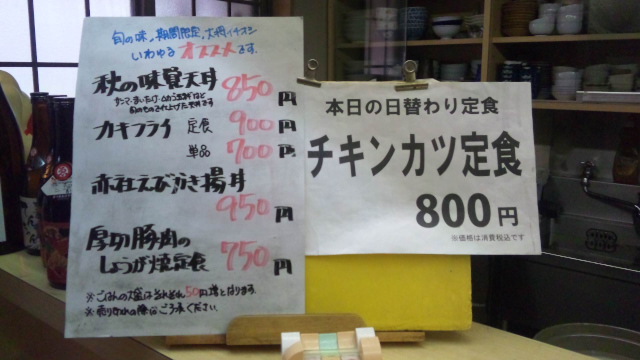 旬の味、期間限定、大将イチオシ
いわゆるオススメです。
秋の味覚天丼 850円
カキフライ 定食 900円
単品 700円
かき揚丼
950円
厚切豚肉の
しょうが焼定食 750円
※ごはんの大盛はそれぞれ50円増となります。
※売り切れの際はご了承ください。
本日の日替わり定食
チキンカツ定食
800円
※価格は消費税込です